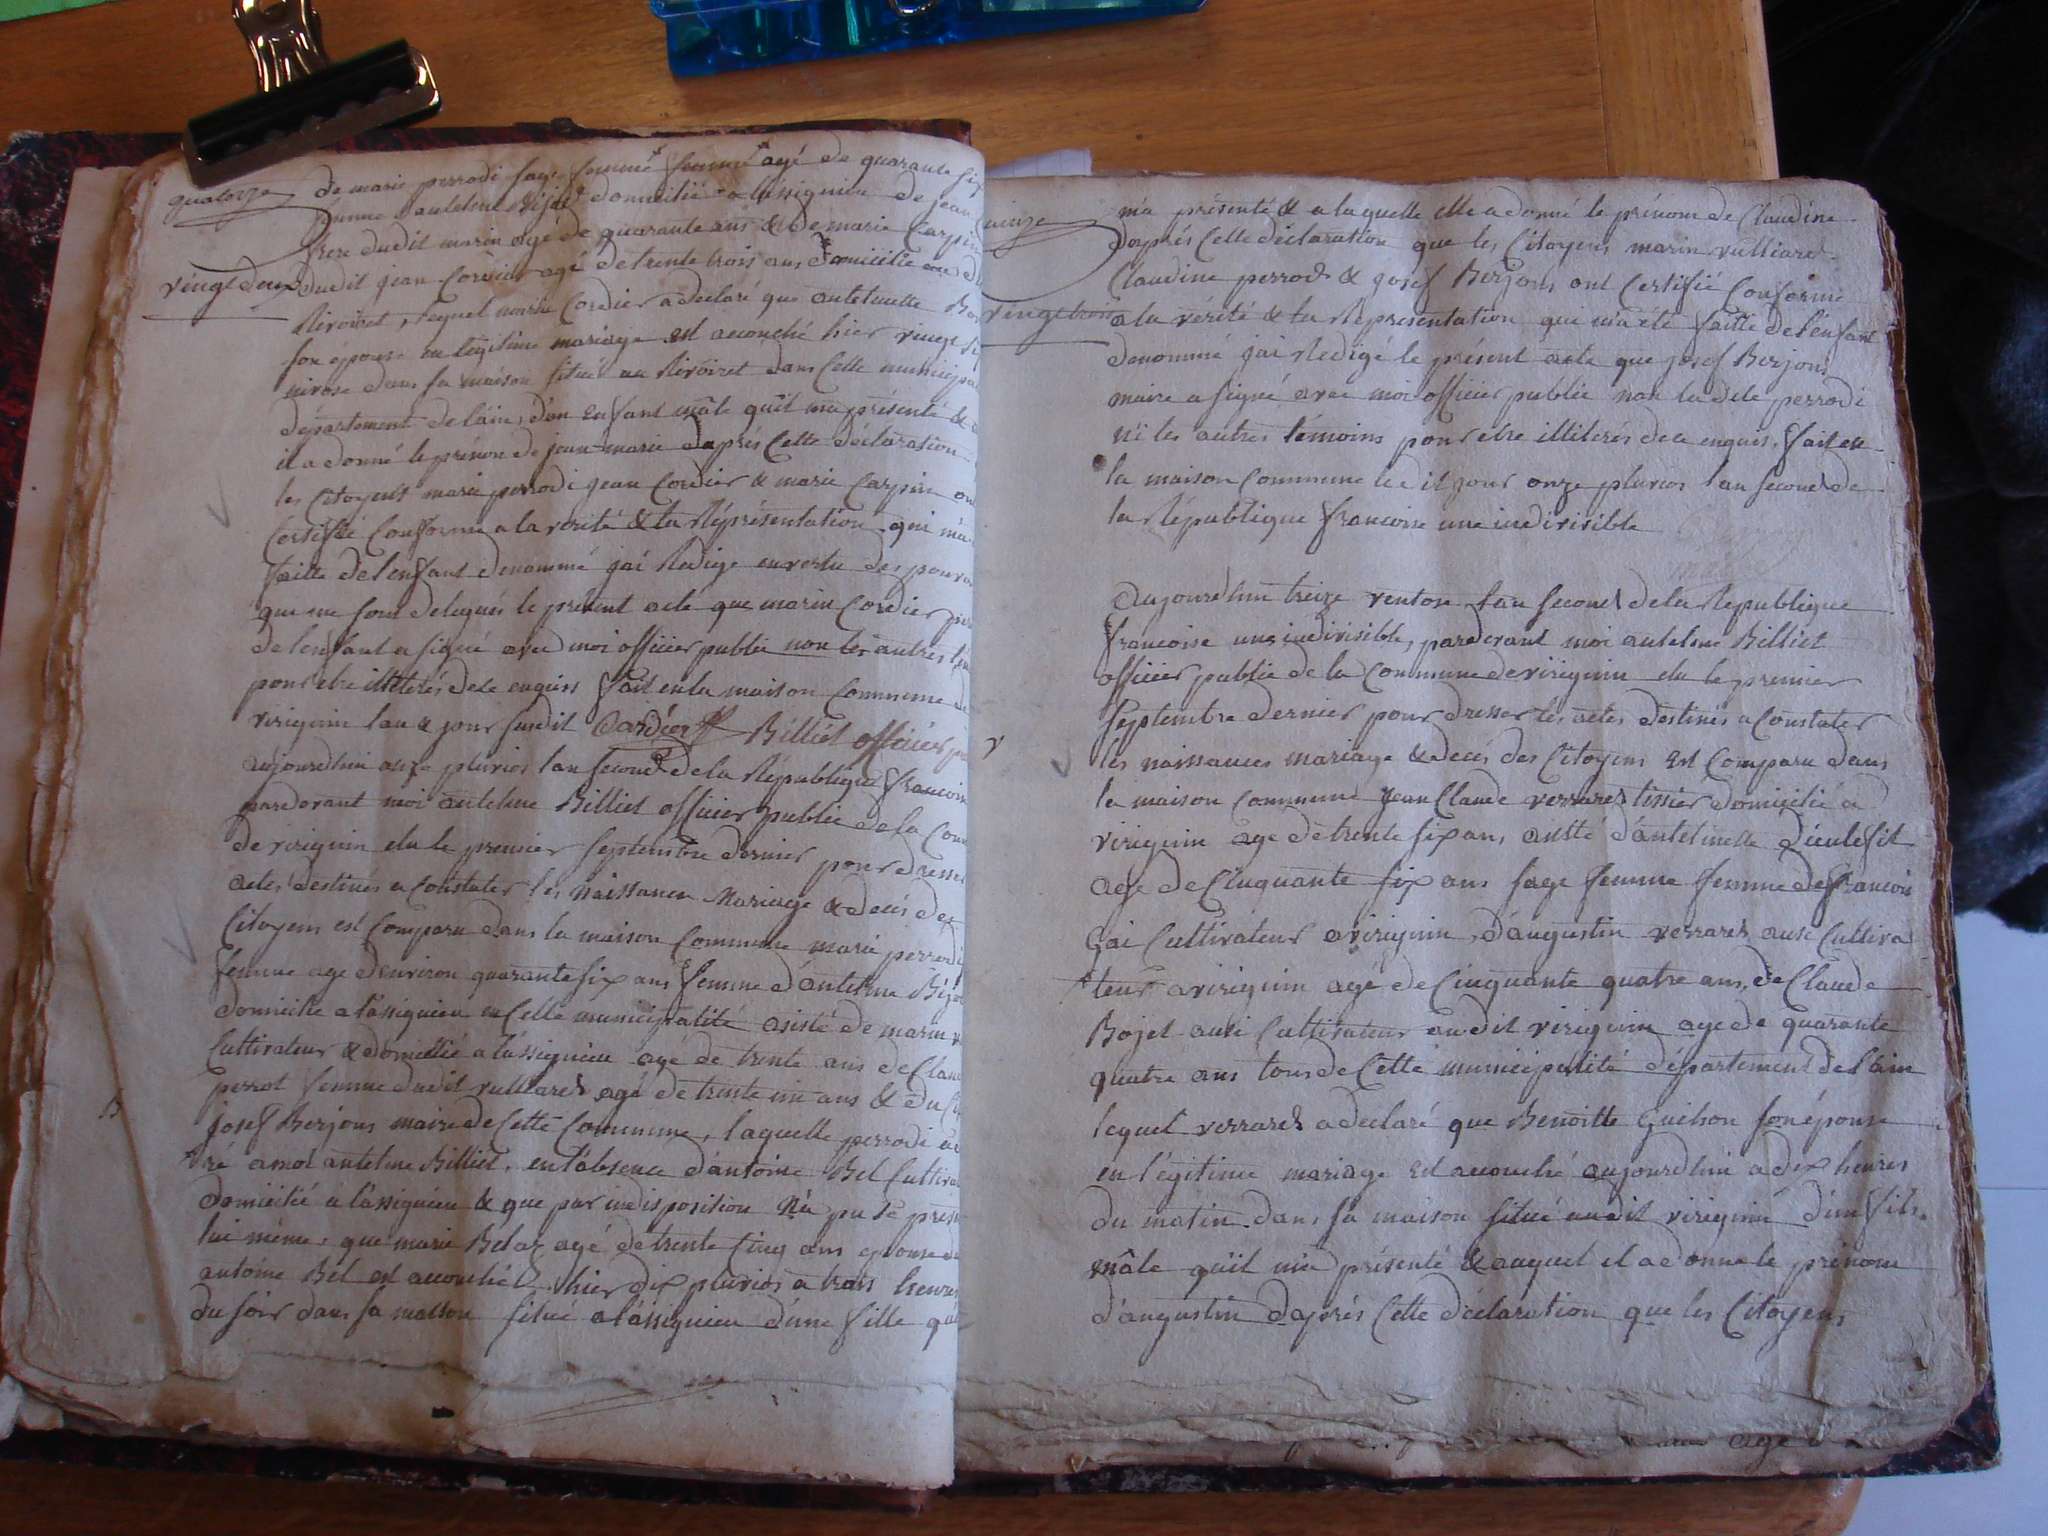 quatorze
vingt deux
de marie perrodi sage femme femme agé de quarante six
femme d'antelme Bijot domicilié a lassignieu de jean
frere dudit marin agé de quarante ans & de marie Carpin
dudit jean Cordier agé de trente trois ans domicilie au
Rivoiret, lequel marin Cordier a declaré que antelmette
son épouse en legitime mariage est acouché hier vingt
nivose dans sa maison situé au Rivoiret dans Cette municipa
département de l'ain, d'un enfant mâle qu'il ma présenté &
il a donné le prénom de jean marie d'aprés Cette déclaration
les Citoyens marie perrodi jean Cordier & marie Carpin on
Certifié Conforme a la verité & la Réprésentation qui m'a
faitte de l'enfant denommé j'ai Redigé en vertu des pouvo
qui me sont delegués le présent acte que marin Cordier
de l'enfant a signé avec moi officier public non les autres
pour etre illiterés de ce enquis fait en la maison Commune de
virignin l'an & jour susdit Cordier Billiet officier pu
aujourdhui onze pluvios l'an second de la République francoise
pardevant moi antelme Billiet officier public de la Com
de virignin elu le premier septembre dernier pour dresser
actes destinés a Constater les naissances Mariage & decés des
Citoyens est Comparu dans la maison Commune marie perrodi
femme age d'environ quarante six ans femme d'antelme Bijot
domicilie a lassignieu en Cette municipalité asisté de marin v
Cultivateur & domicilié a lassignieu agé de trente ans de Clau
perrot femme dudit vulliared agé de trente un ans & du Ci
josef Berjons maire de Cette Commune, laquelle perrodi a
ré a moi antelme Billiet, en l'absence d'antoine Bel Cultiva
domicilié a lassignieu & que par indisposition n'a pu se prese
lui même, que marie Belaz agé de trente Cinq ans epouse
antoine Bel est acouchée hier dix pluvios a trois heures
du soir dans sa maison situé a lassignieu d'une fille qu
quinze
vingt trois
m'a présenté & a laquelle elle a donné le prénom de Claudine
d'aprés Cette déclaration que les Citoyens marin vulliared
Claudine perrod & josef Berjons ont Certifié Conforme
a la vérité & la Réprésentation qui m'a été faitte de l'enfant
denommé j'ai Redigé le présent acte que josef Berjons
maire a signé avec moi officier public non la dite perrodi
ni les autres témoins pour etre illiterés de ce enquis, fait en
la maison Commune le dit jour onze pluvios l'an second de
la République francoise une indivisible
aujourdhui treize ventose l'an second de la Republique
francoise une indivisible, pardevant moi antelme Billiet
officier public de la Commune de virignin elu le premier
septembre dernier pour dresser les actes destinés a Constater
les naissances mariage & decés des Citoyens est Comparu dans
la maison Commune jean Claude verrared tissier domicilié a
virignin age de trente six ans asisté d'antelmette dieulefit
age de Cinquante six ans sage femme femme de francois
gai Cultivateur a virignin, d'augustin verrared ausi Cultiva
teur a virignin agé de Cinquante quatre ans, de Claude
Bojet ausi Cultivateur audit virignin age de quarante
quatre ans tous de Cette municipalité département de l'ain
lequel verrared a declaré que Benoitte guihon son épouse
en l'égitime mariage est acouché aujourdhui a dix heures
du matin dans sa maison situé audit virignin d'un fils
mâle qu'il m'a présenté & auquel il a donné le prénom
d'augustin d'aprés Cette déclaration que les Citoyens
age